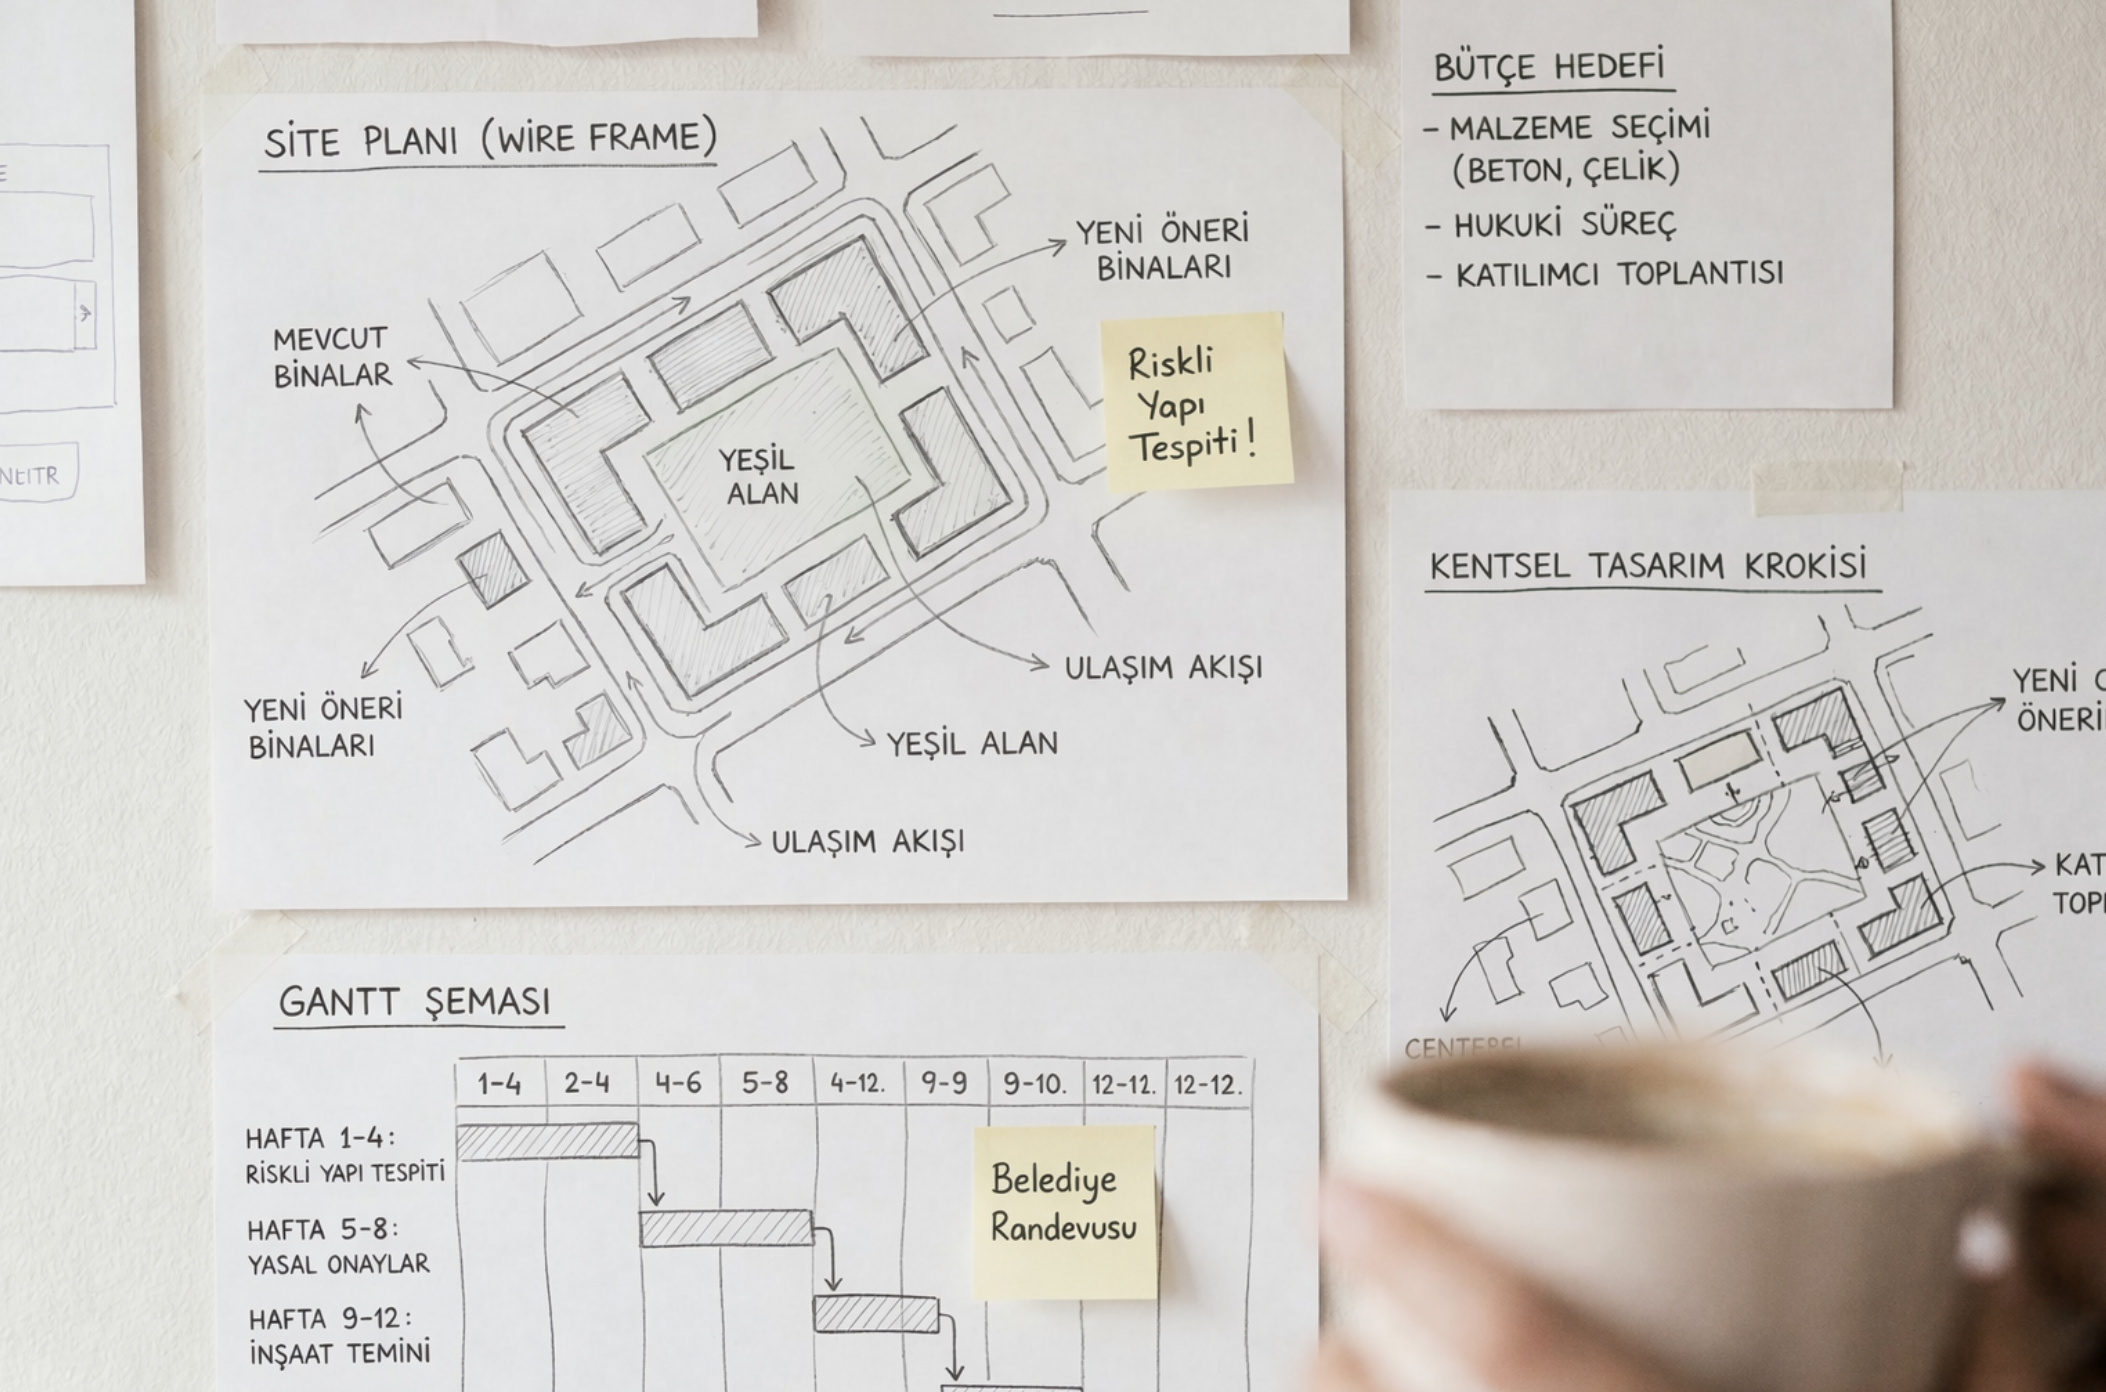 SİTE PLANI (WIRE FRAME)
MEVCUT
BİNALAR
YENİ ÖNERİ
BİNALARI
YEŞİL
ALAN
YENİ ÖNERİ
BİNALARI
ULAŞIM AKIŞI
YEŞİL ALAN
ULAŞIM AKIŞI
Riskli
Yapı
Tespiti!
BÜTÇE HEDEFİ
- MALZEME SEÇİMİ
(BETON, ÇELİK)
- HUKUKİ SÜREÇ
- KATILIMCI TOPLANTISI
KENTSEL TASARIM KROKİSİ
YENİ
ÖNERİ
KAT
GANTT ŞEMASI
1-4 2-4 4-6 5-8 4-12. 9-9 9-10. 12-12. 12-12.
HAFTA 1-4:
RİSKLİ YAPI TESPİTİ
HAFTA 5-8:
YASAL ONAYLAR
HAFTA 9-12:
İNŞAAT TEMİNİ
Belediye
Randevusu